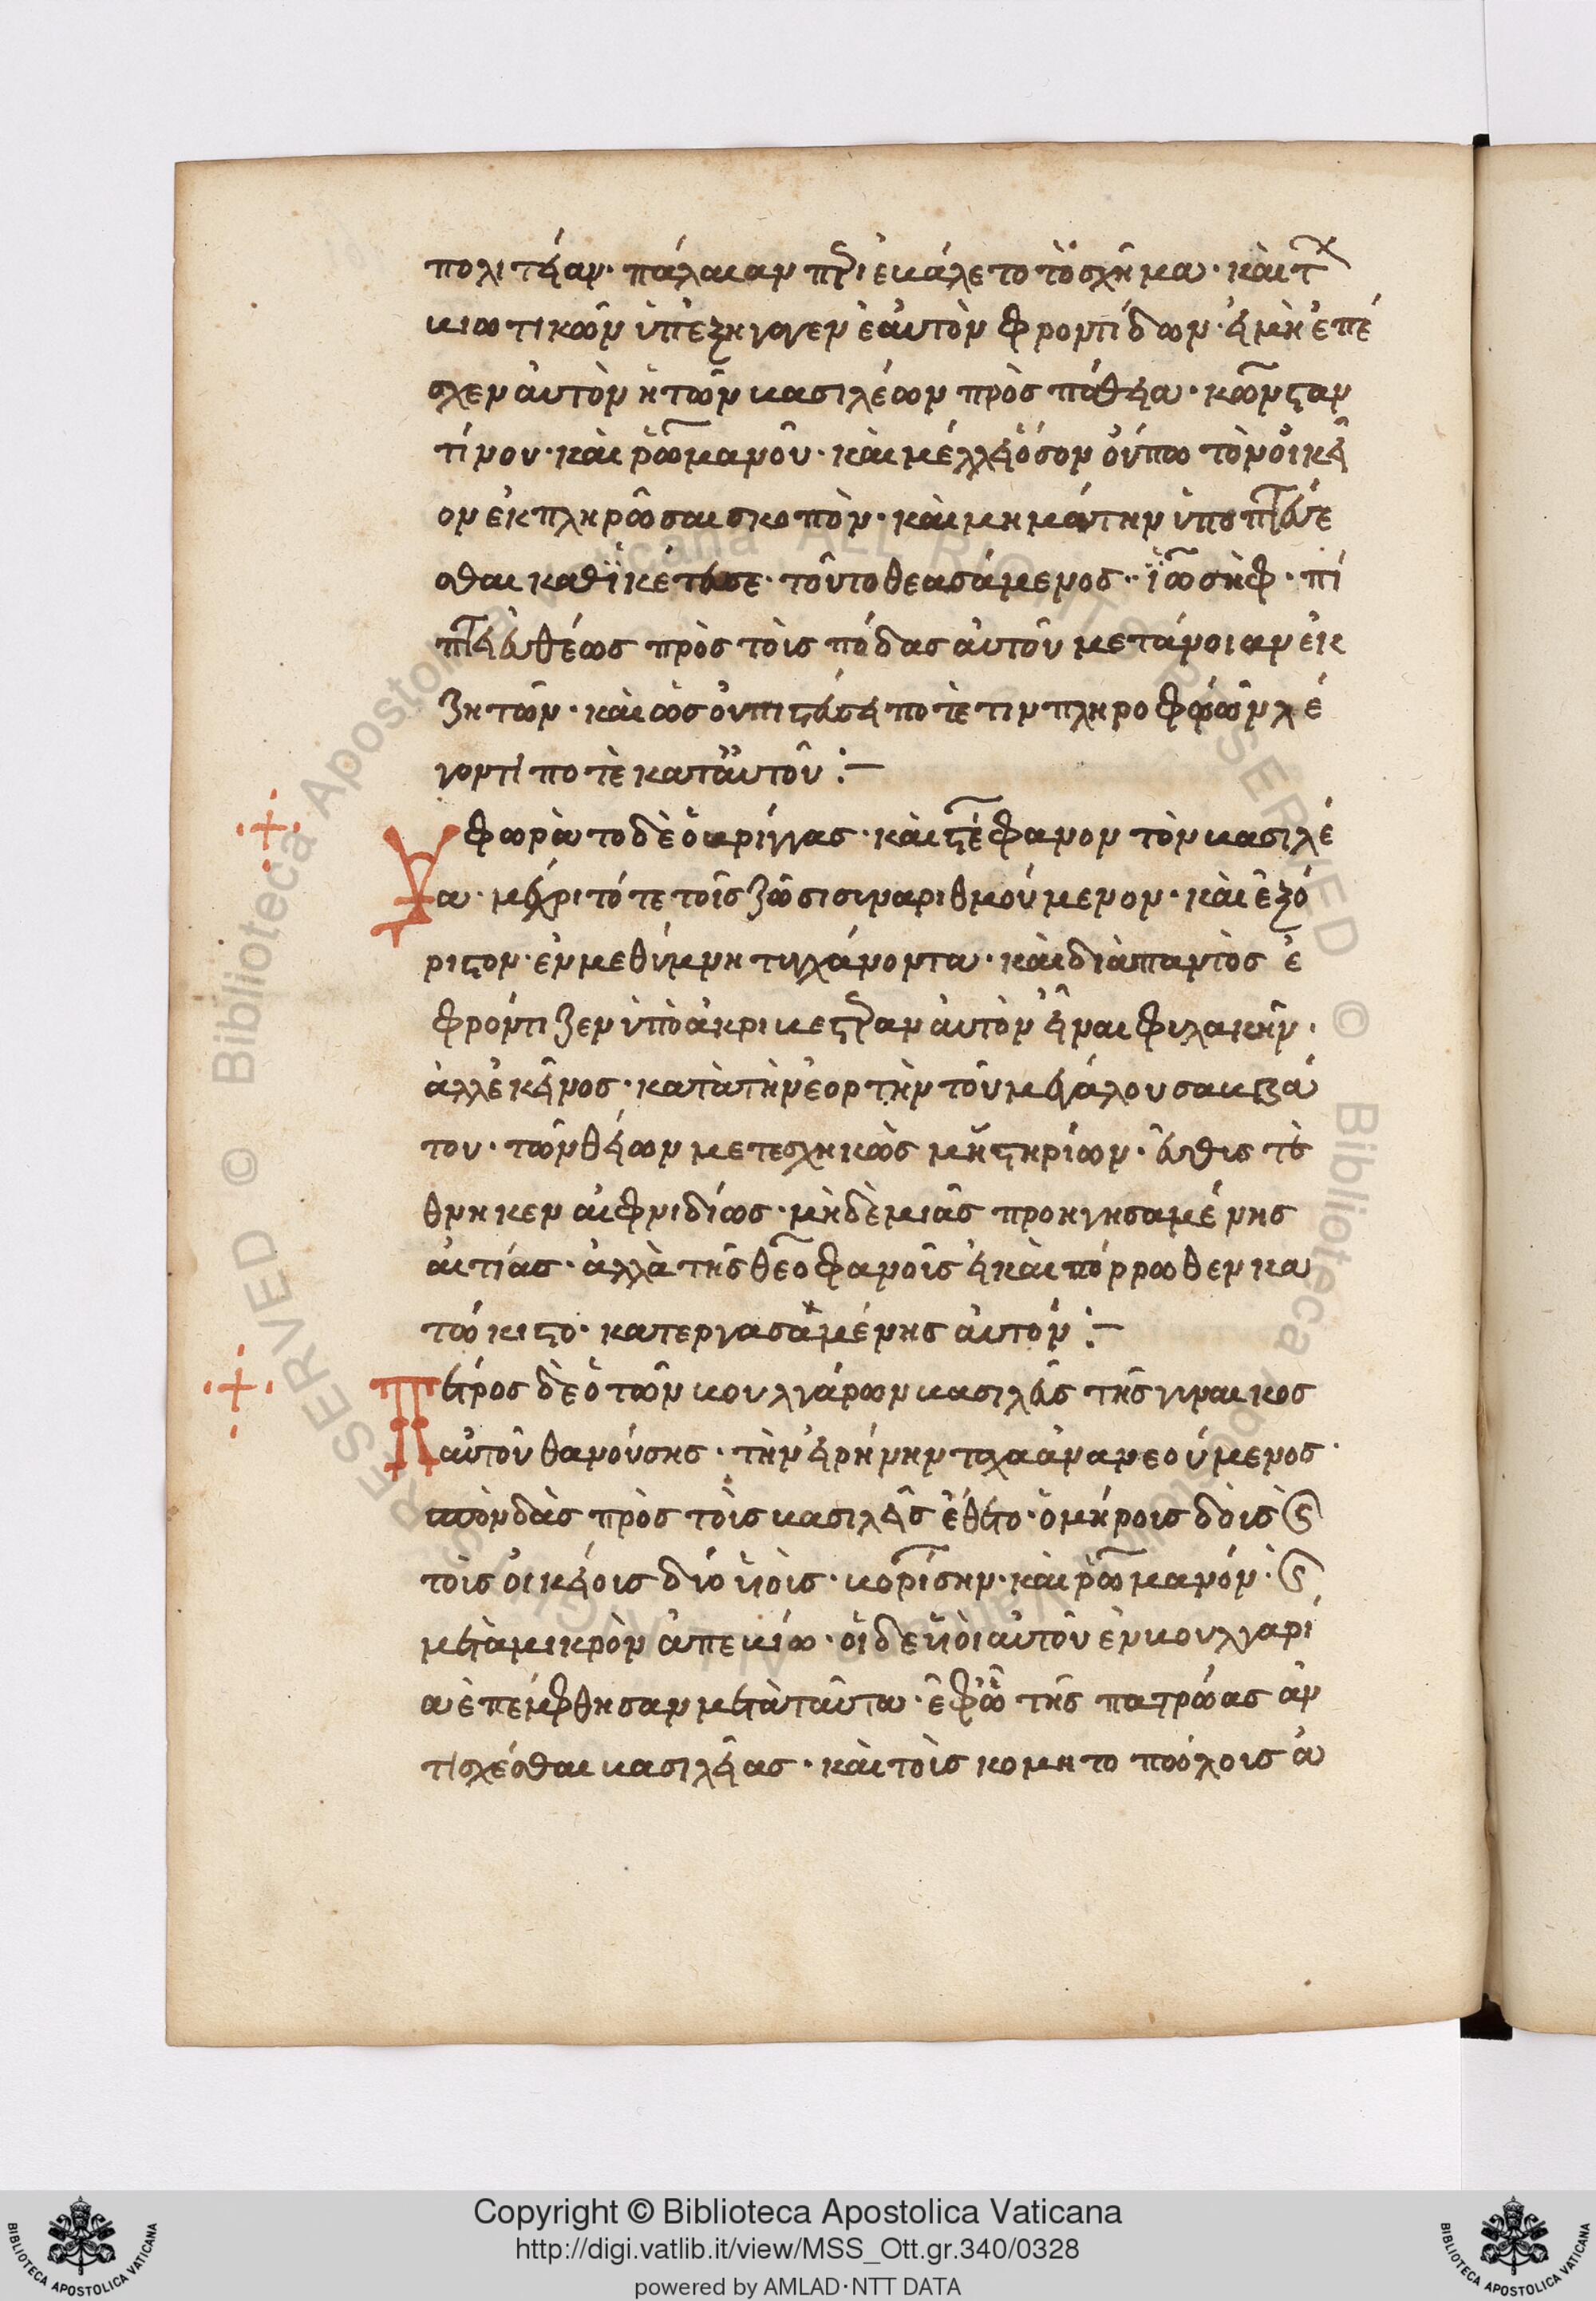 πολιτείαν· πάλαι ἂν περιεβάλετο τὸ σχῆμα· καὶ τῶν
βιωτικῶν ὑπεξήγαγεν ἑαυτὸν φροντίδων· εἰ μὴ ἐπέ
σχεν αὐτὸν ἡ τῶν βασιλέων προσπάθεια· κωνσταν
τίνου· καὶ ῥωμανοῦ· καὶ μέλλει ὅσον οὔπω τὸν οἰκεῖ
ον ἐκπληρῶσαι σκοπὸν· καὶ μὴ μάτην ὑποπτεύε
σθαι καθικέτευσε· τοῦτο θεασάμενος· ἰωσὴφ· πί
πτει εὐθέως πρὸς τοὶς πόδας αὐτοῦ μετάνοιαν ἐκ
ζητῶν· καὶ ὡς οὐ πιστεύσει ποτέ τιν πληροφορῶν λέ
γοντί ποτὲ κατ αὐτοῦ :—
Υφωρᾶτο δὲ ὁ βρίγγας· καὶ στέφανον τὸν βασιλέ
α· μέχρι τότε τοῖς ζῶσι σιναριθμούμενον· καὶ ἐξό
ριστον· ἐν μεθύμνη τυγχάνοντα· καὶ διὰ παντὸς ἐ
φρόντιζεν ὑπὸ ἀκριβεστέραν αὐτὸν εἶναι φυλακὴν·
ἀλλ ἐκεῖνος· κατὰ τὴν ἑορτὴν τοῦ μεγάλου σαββά
του· τῶν θείων μετεσχηκὼς μυστηρίων· εὐθὶς τὲ
θνηκεν αἰφνιδίως· μηδὲμιᾶς προηγησαμένης
αἰτίας· ἀλλὰ τῆς θεοφανοῖς εἰ καὶ πόρρωθεν κα
τώκιστο· κατεργασαμένης αὐτόν :—
Πέτρος δὲ ὁ τῶν βουλγάρων βασιλεὺς τῆς γυναικος
αὐτοῦ θανούσης· τὴν εἰρήνην τάχα ἀνανεούμενος·
σπονδὰς πρὸς τοὶς βασιλεῖς ἔθετο· ὁμήροις δοὶς καὶ
τοὶς οἰκείοις δύο υἱοὶς· βορίσην· καὶ ῥωμανόν· καὶ
μετὰ μικρὸν ἀπεβίω· οἱ δὲ υἱοὶ αὐτοῦ ἐν βουλγαρί
α ἐπέμφθησαν μετὰ ταῦτα· ἐφῶ τῆς πατρώας ἀν
τισχέσθαι βασιλείας· καὶ τοὶς κομητοπώλοις ἀ
Copyright © Biblioteca Apostolica Vaticana
http://digi.vatlib.it/view/MSS_Ott.gr.340/0328
powered by AMLAD·NTT DATA